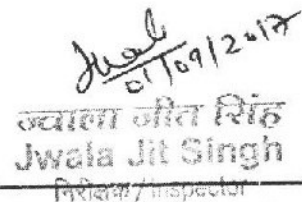 Jwala
01/09/2017
ज्वाला जीत सिंह
Jwala Jit Singh
निरीक्षक/Inspector